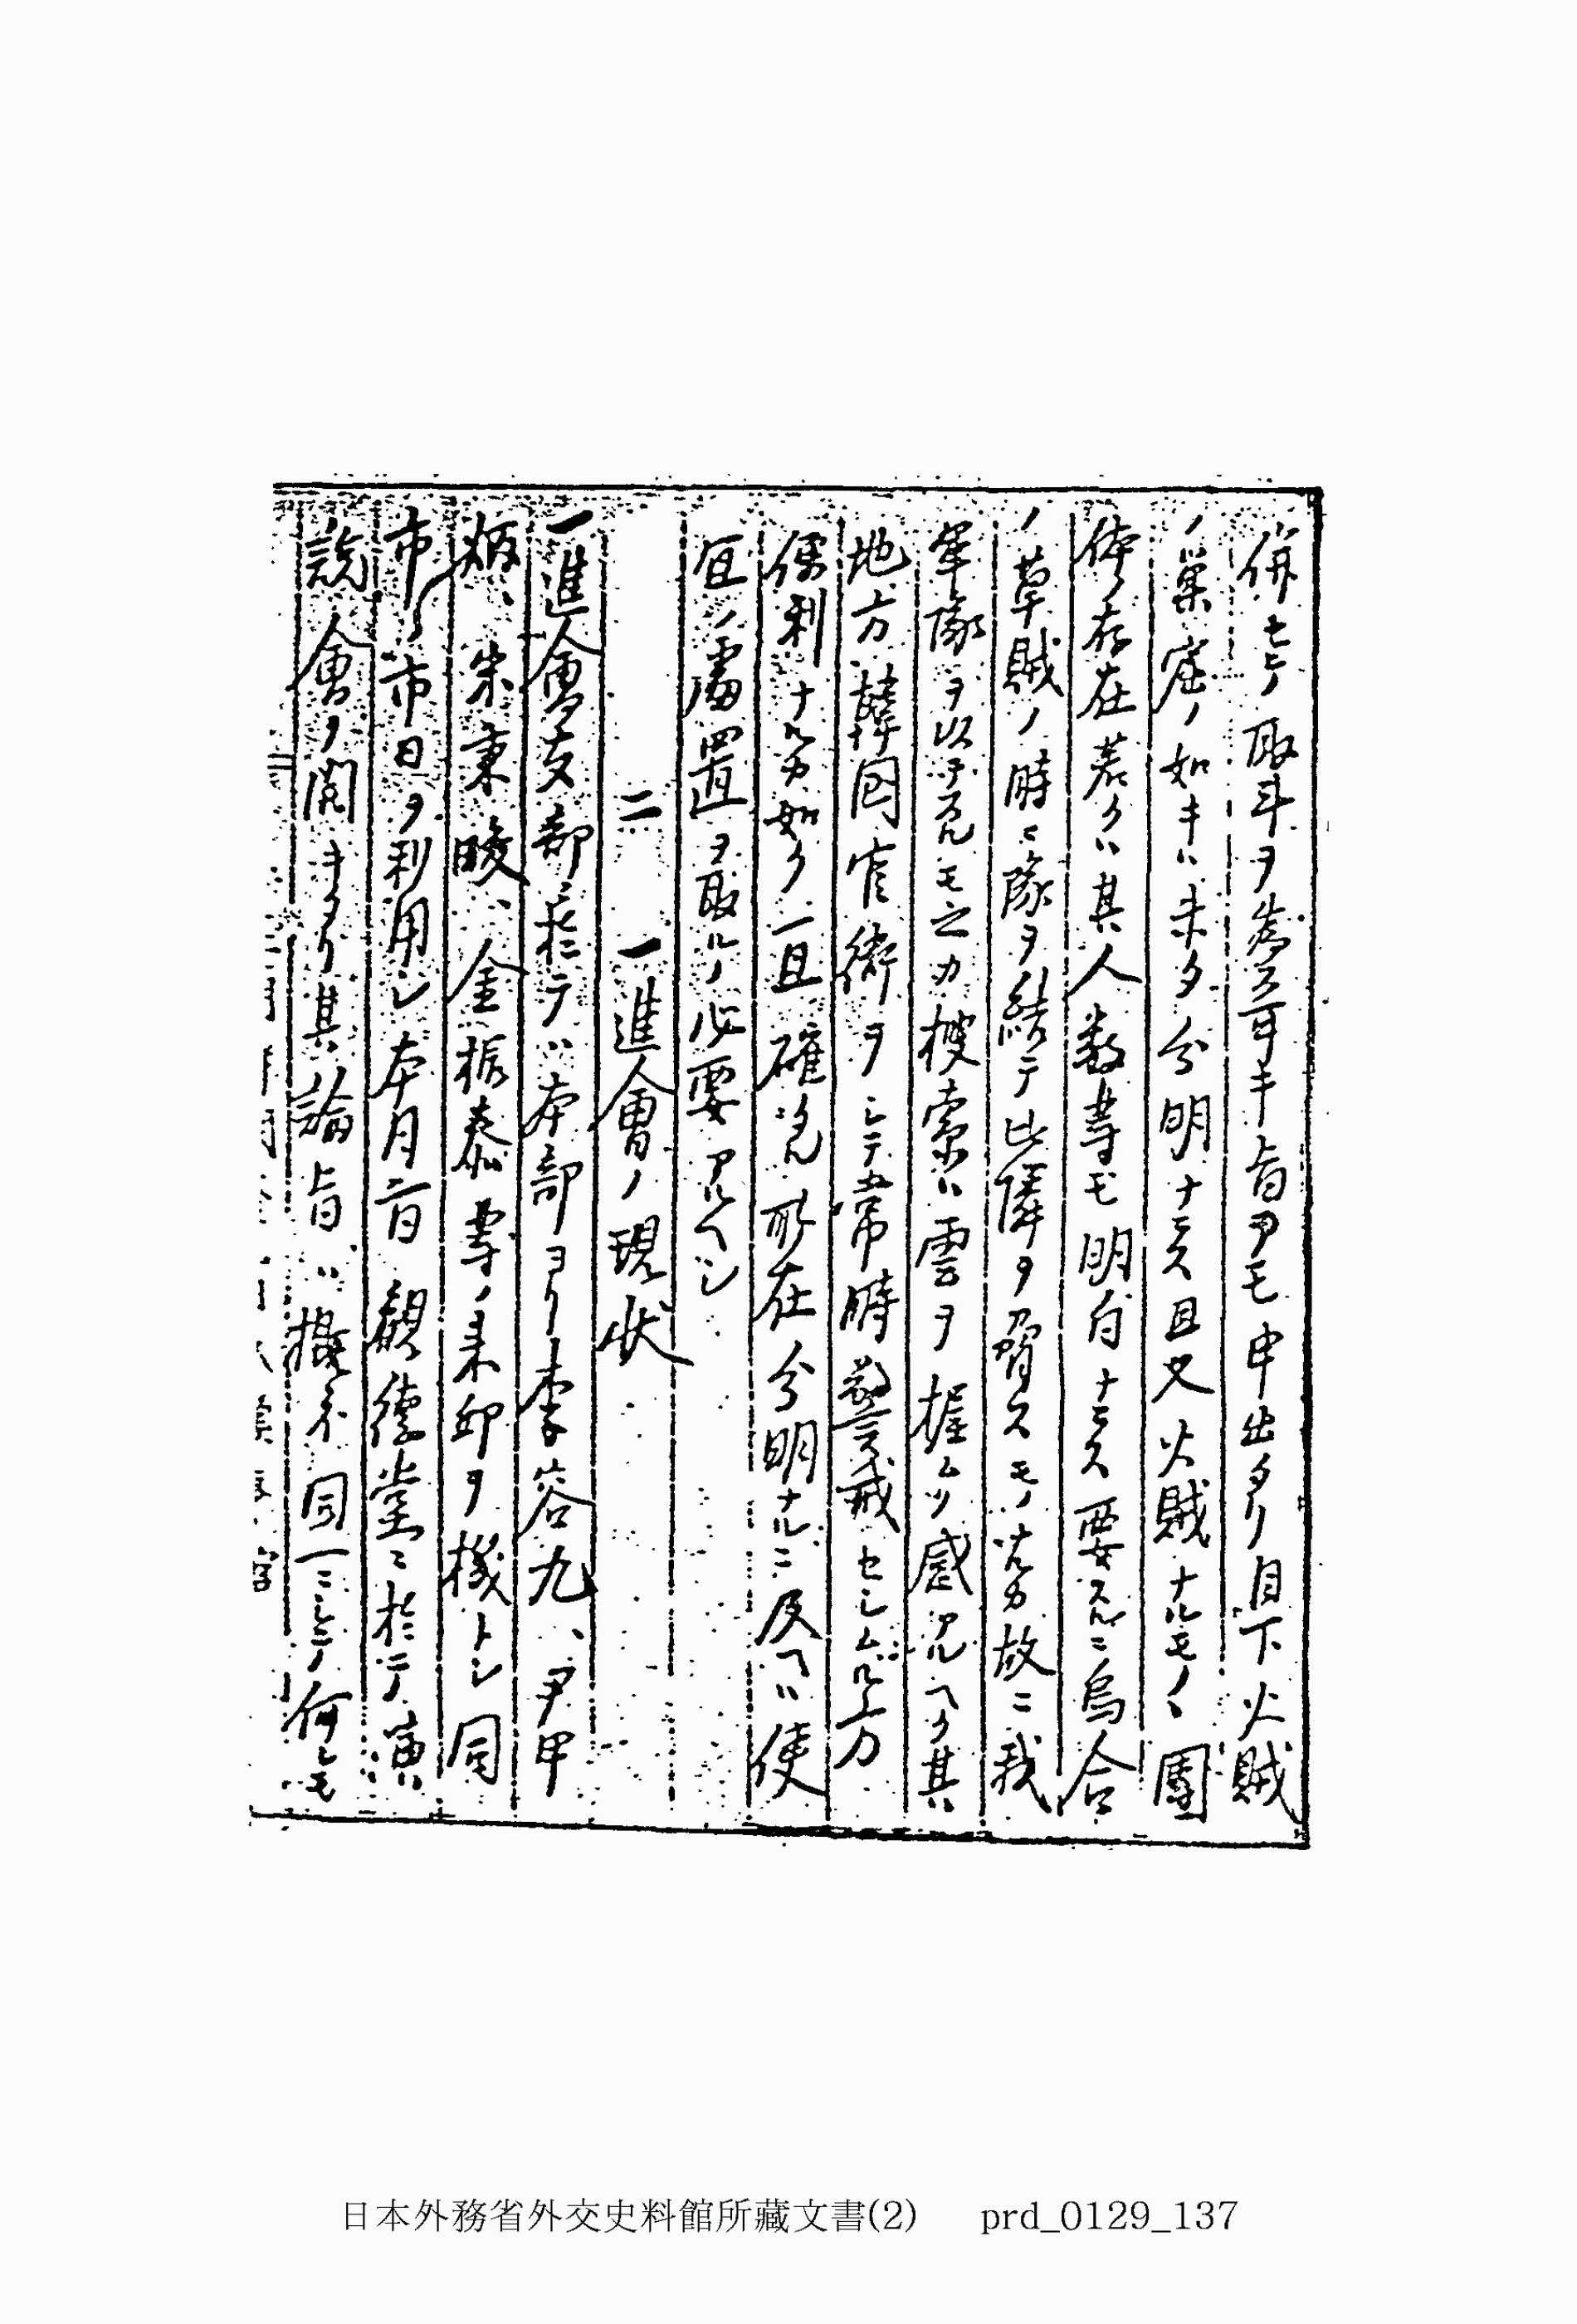 併セテ取斗ヲ為ス可キ旨ヲモ申出タリ目下火賊
ノ巣窟ノ如キハ未タ分明ナラス且又火賊ナルモノヽ團
体ノ存在若クハ其人数等モ明白ナラス要スルニ烏合
ノ草賊ノ時ニ隊ヲ結テ比隣ヲ脅スモノナルカ故ニ我
軍隊ヲ以テスルモ之カ捜索ハ雲ヲ握ムノ感アルヘク其
地方韓国官衙ヲシテ常時警戒セシムル方
便利ナルカ如ク一旦確然所在分明ナルニ及ヘハ便
宜ノ處置ヲ取ルノ必要アルヘシ
二 一進會ノ現状
一進會支部ニ於テハ本部ヨリ李容九、尹甲
炳、宋秉畯、金振泰等ノ来邱ヲ機トシ同
市ノ市日ヲ利用シ本月二日観徳堂ニ於テ演
説會ヲ開キタリ其論旨ハ概ネ同一ニシテ何レモ
日本外務省外交史料館所藏文書(2) prd_0129_137